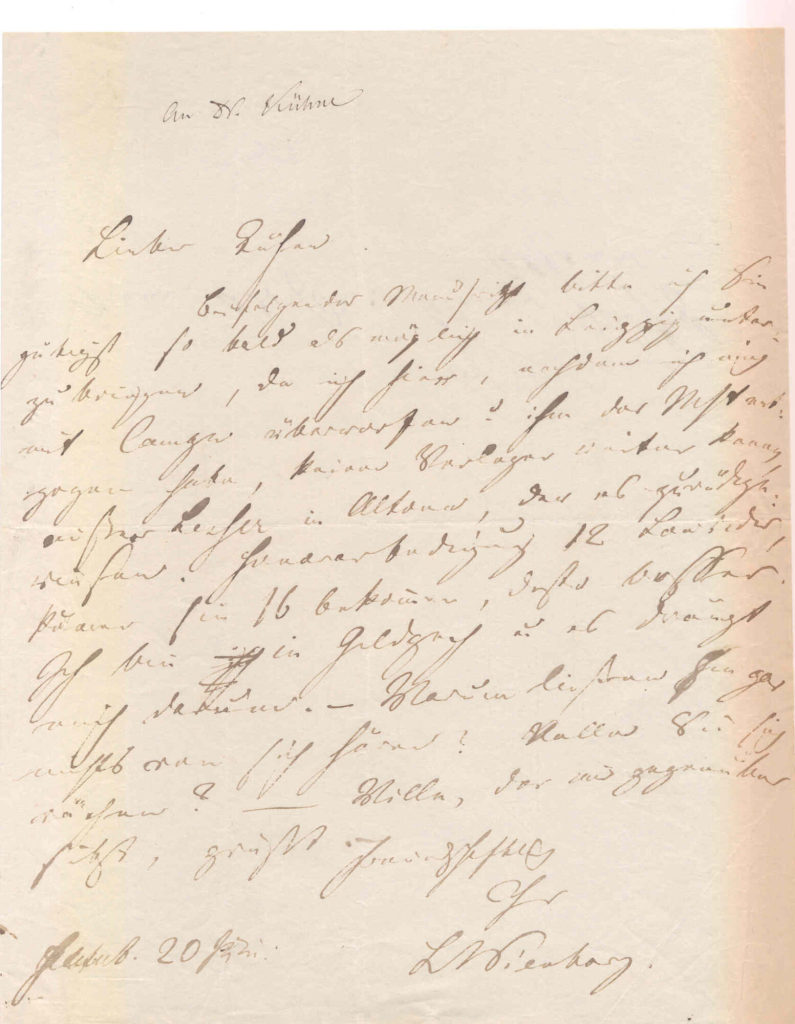 An Dr. Kühne
Lieber Kühne.
Beifolgendes Manuscript bitte ich Sie
gütigst so bald als möglich in Leipzig unter-
zubringen, da ich hier, nachdem ich mich
mit Campe überworfen u ihm das Mst ent-
zogen habe, keinen Verleger weiter kenne,
außer Lesser in Altona, der es zurückge-
wiesen. Honorarbedingung 12 Louisdor,
können Sie 16 bekommen, desto besser.
Ich bin in Geldpech u es drängt
mich darum. – Warum ließen Sie gar
nichts von sich hören? Wollen Sie sich
rächen? — Wille, der mir gegenüber
sitzt, grüßt freundschaftl
Ihr
LWienbarg.
20